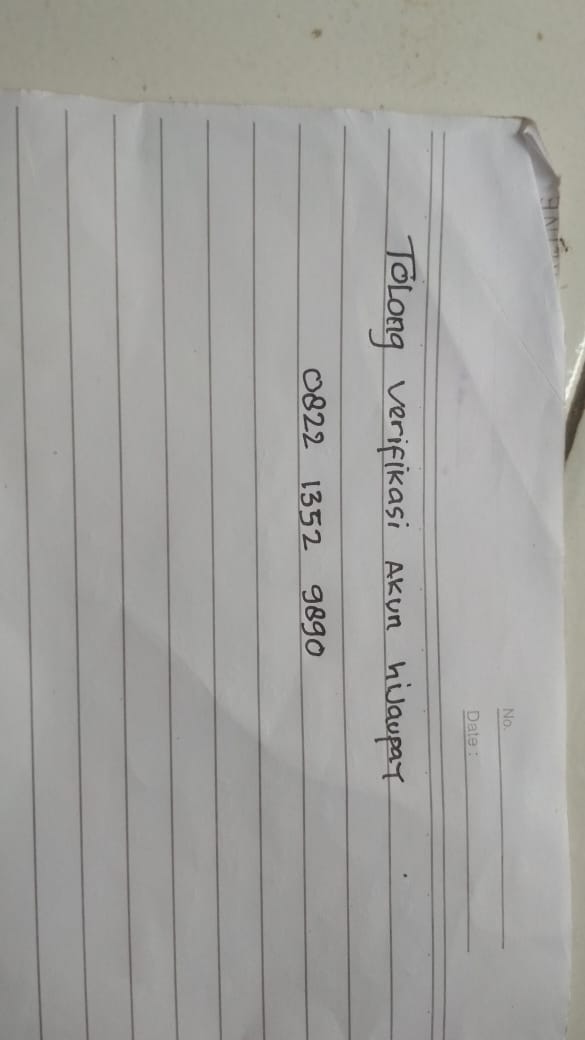 No.
Date :
Tolong verifikasi Akun hijaupay
0822 1352 9890